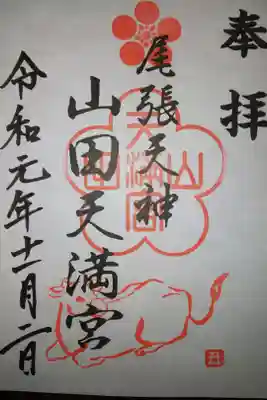 奉拝
尾張天神
山田天満宮
令和元年十一月二日
山田天満宮
丑